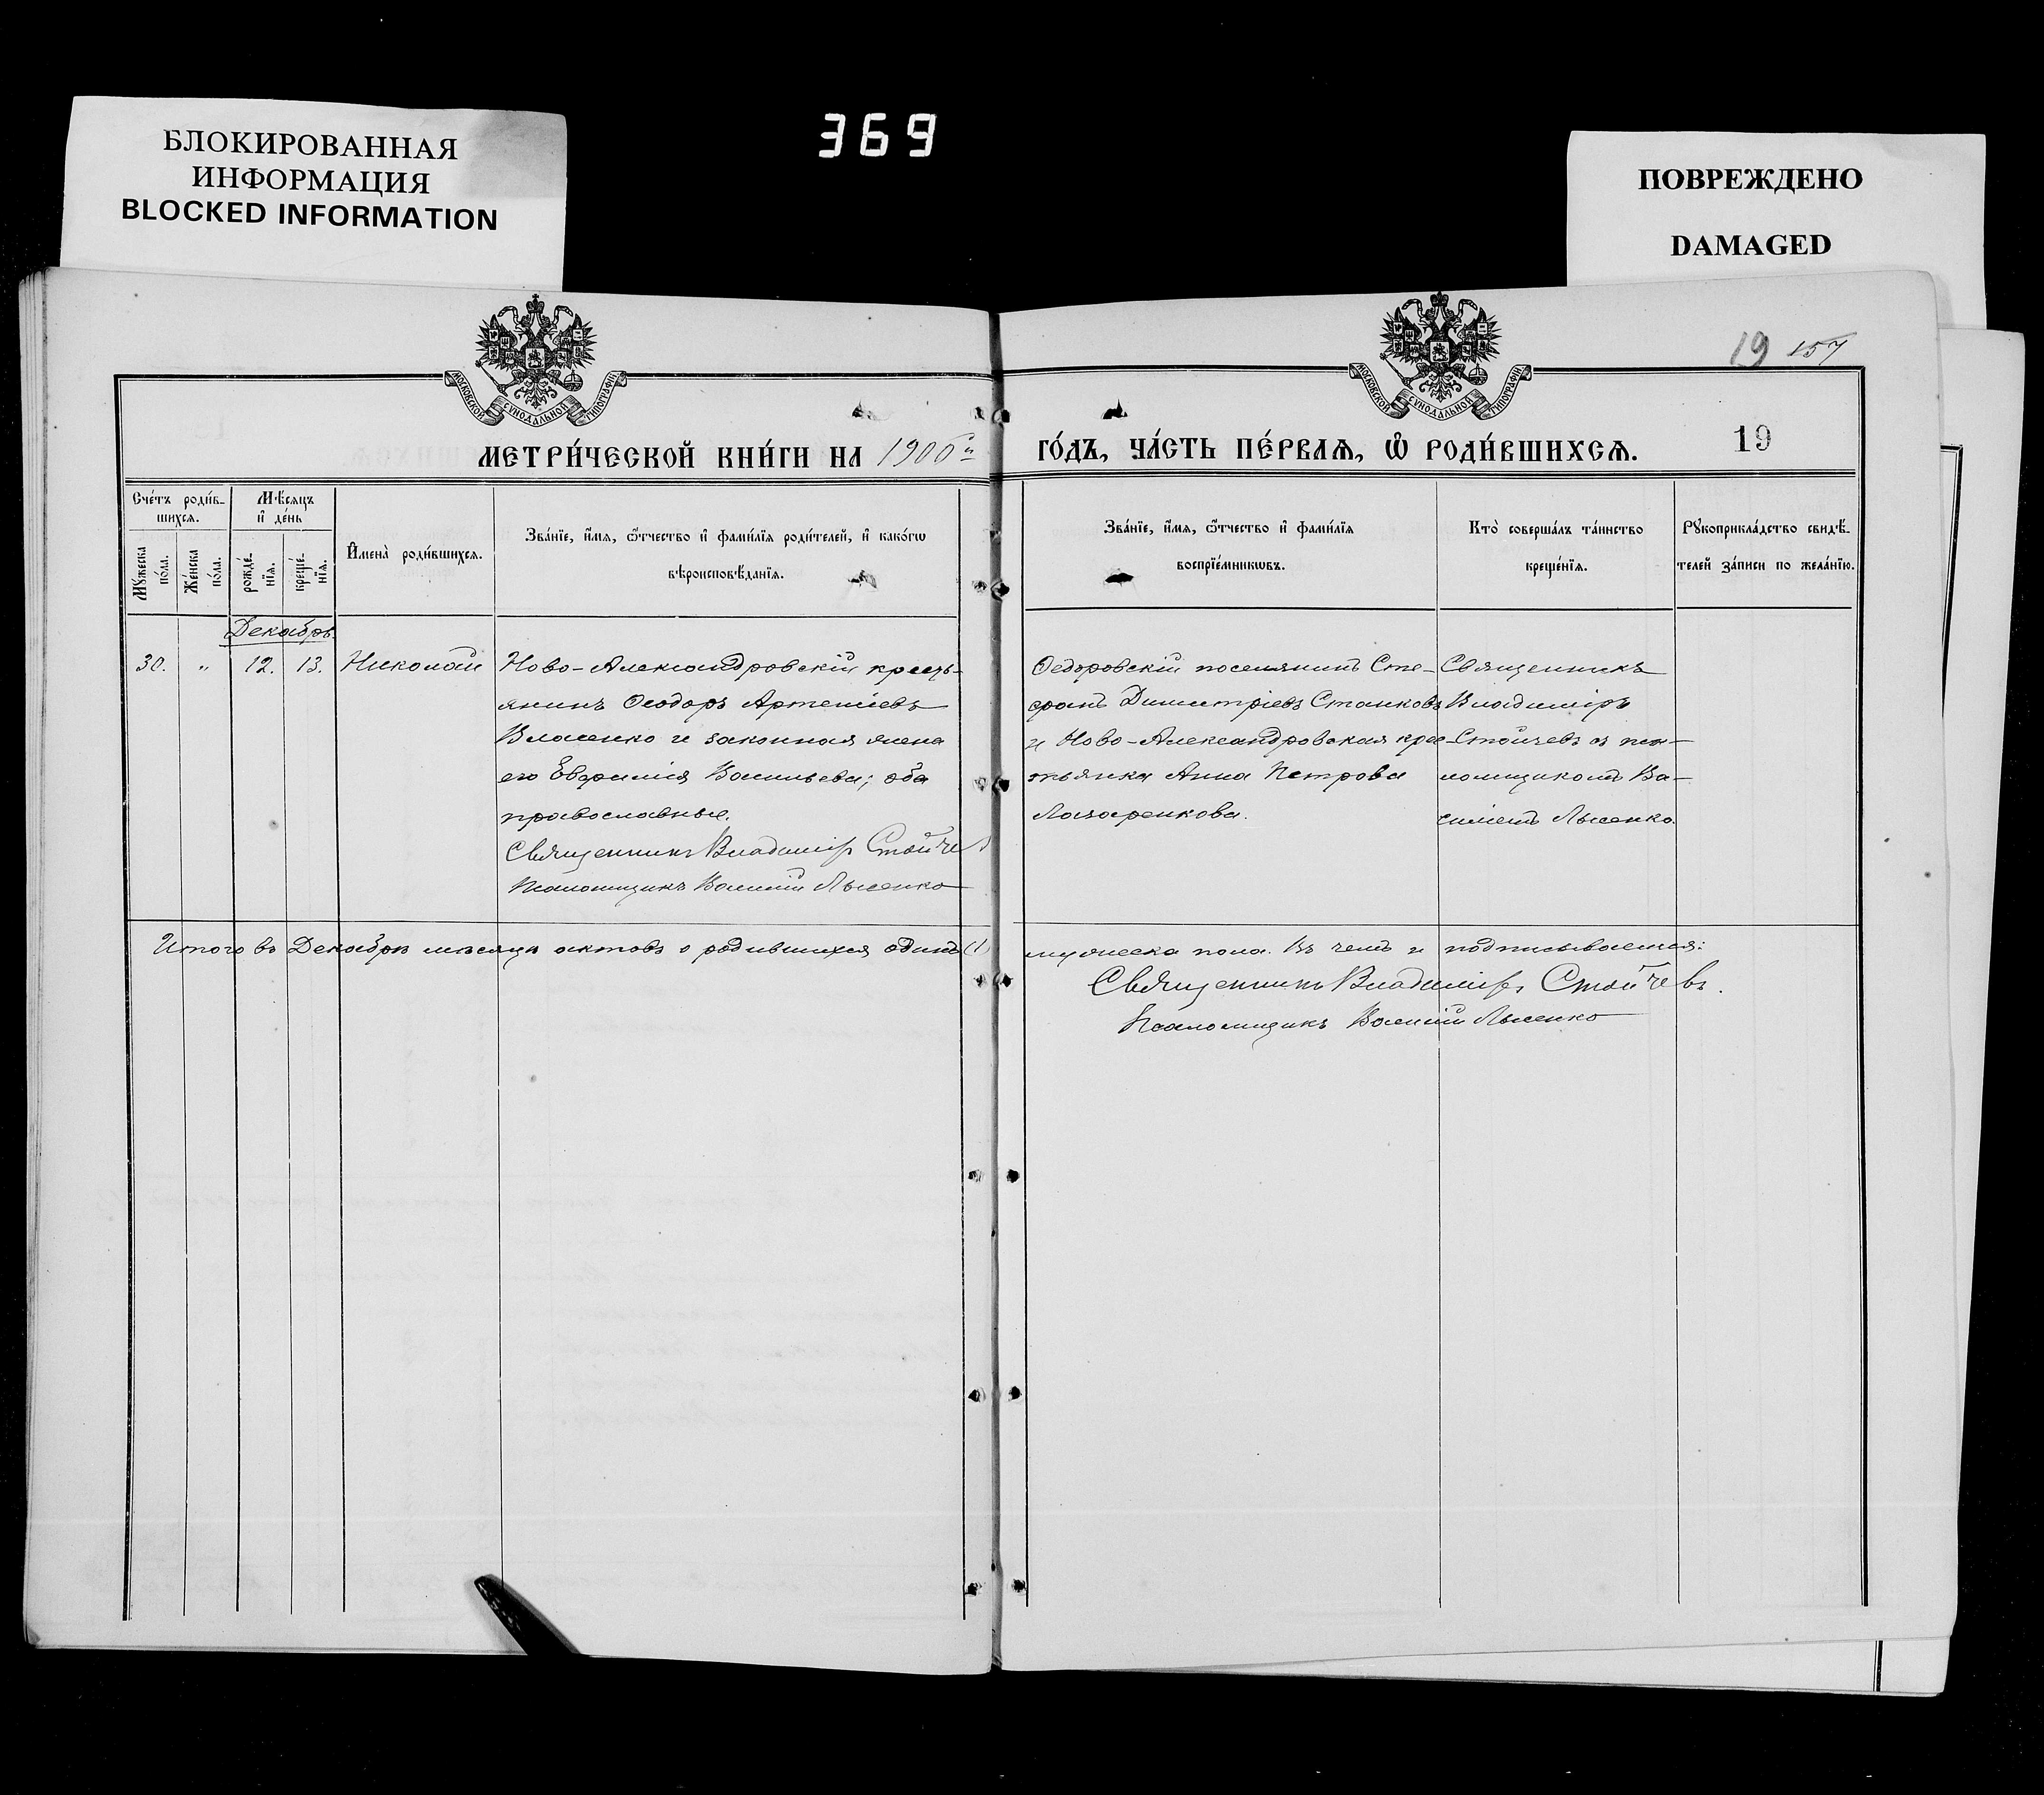 БЛОКИРОВАННАЯ
ИНФОРМАЦИЯ
BLOCKED INFORMATION
369
ПОВРЕЖДЕНО
DAMAGED
МОСКОВСКОЙ СѴНОДАЛЬНОЙ ТИПОГРАФІИ
МОСКОВСКОЙ СѴНОДАЛЬНОЙ ТИПОГРАФІИ
19 157
МЕТРИ́ЧЕСКОЙ КНИ́ГИ НА
ГО́ДЪ, ЧА́СТЬ ПЕ́РВАѦ, Ѡ҆ РОДИ́ВШИХСѦ.
19
Сче́тъ роди́в-
шихсѧ.
Мѣ́сѧцъ
и҆ де́нь
Мꙋ́жеска
по́ла.
Же́нска
по́ла.
рожде́-
нїѧ.
креще́-
нїѧ.
И҆мена̀ роди́вшихсѧ.
Зва́нїе, и҆́мѧ, ѻ҆́тчество и҆ фами́лїѧ роди́телей, и҆ како́гѡ
вѣроисповѣ́данїѧ.
Зва́нїе, и҆́мѧ, ѻ҆́тчество и҆ фами́лїѧ
воспрїе́мникѡвъ.
Кто̀ соверша́лъ та́инство
креще́нїѧ.
Рꙋкоприкла́дство свидѣ́-
телей за́писи по жела́нїю.
Декабрь.
30. „ 12. 13. Николай
Ново-Александровскій кресть-
янинъ Ѳеодоръ Артеміевъ
Власенко и законная жена
его Евфимія Васильева; оба
православные.
Священникъ Владиміръ Стойчевъ
Псаломщикъ Василій Лысенко
Ѳедоровскій поселянинъ Сте-
фанъ Димитріевъ Станковъ
и Ново-Александровская крес-
тьянка Анна Петрова
Лазаренкова.
Священникъ
Владиміръ
Стойчевъ съ пса-
ломщикомъ Ва-
силіемъ Лысенко.
Итого въ Декабрѣ мѣсяцѣ актовъ о родившихся одинъ (1)
мужеска пола. Въ чемъ и подписываемся:
Священникъ Владиміръ Стойчевъ.
Псаломщикъ Василій Лысенко